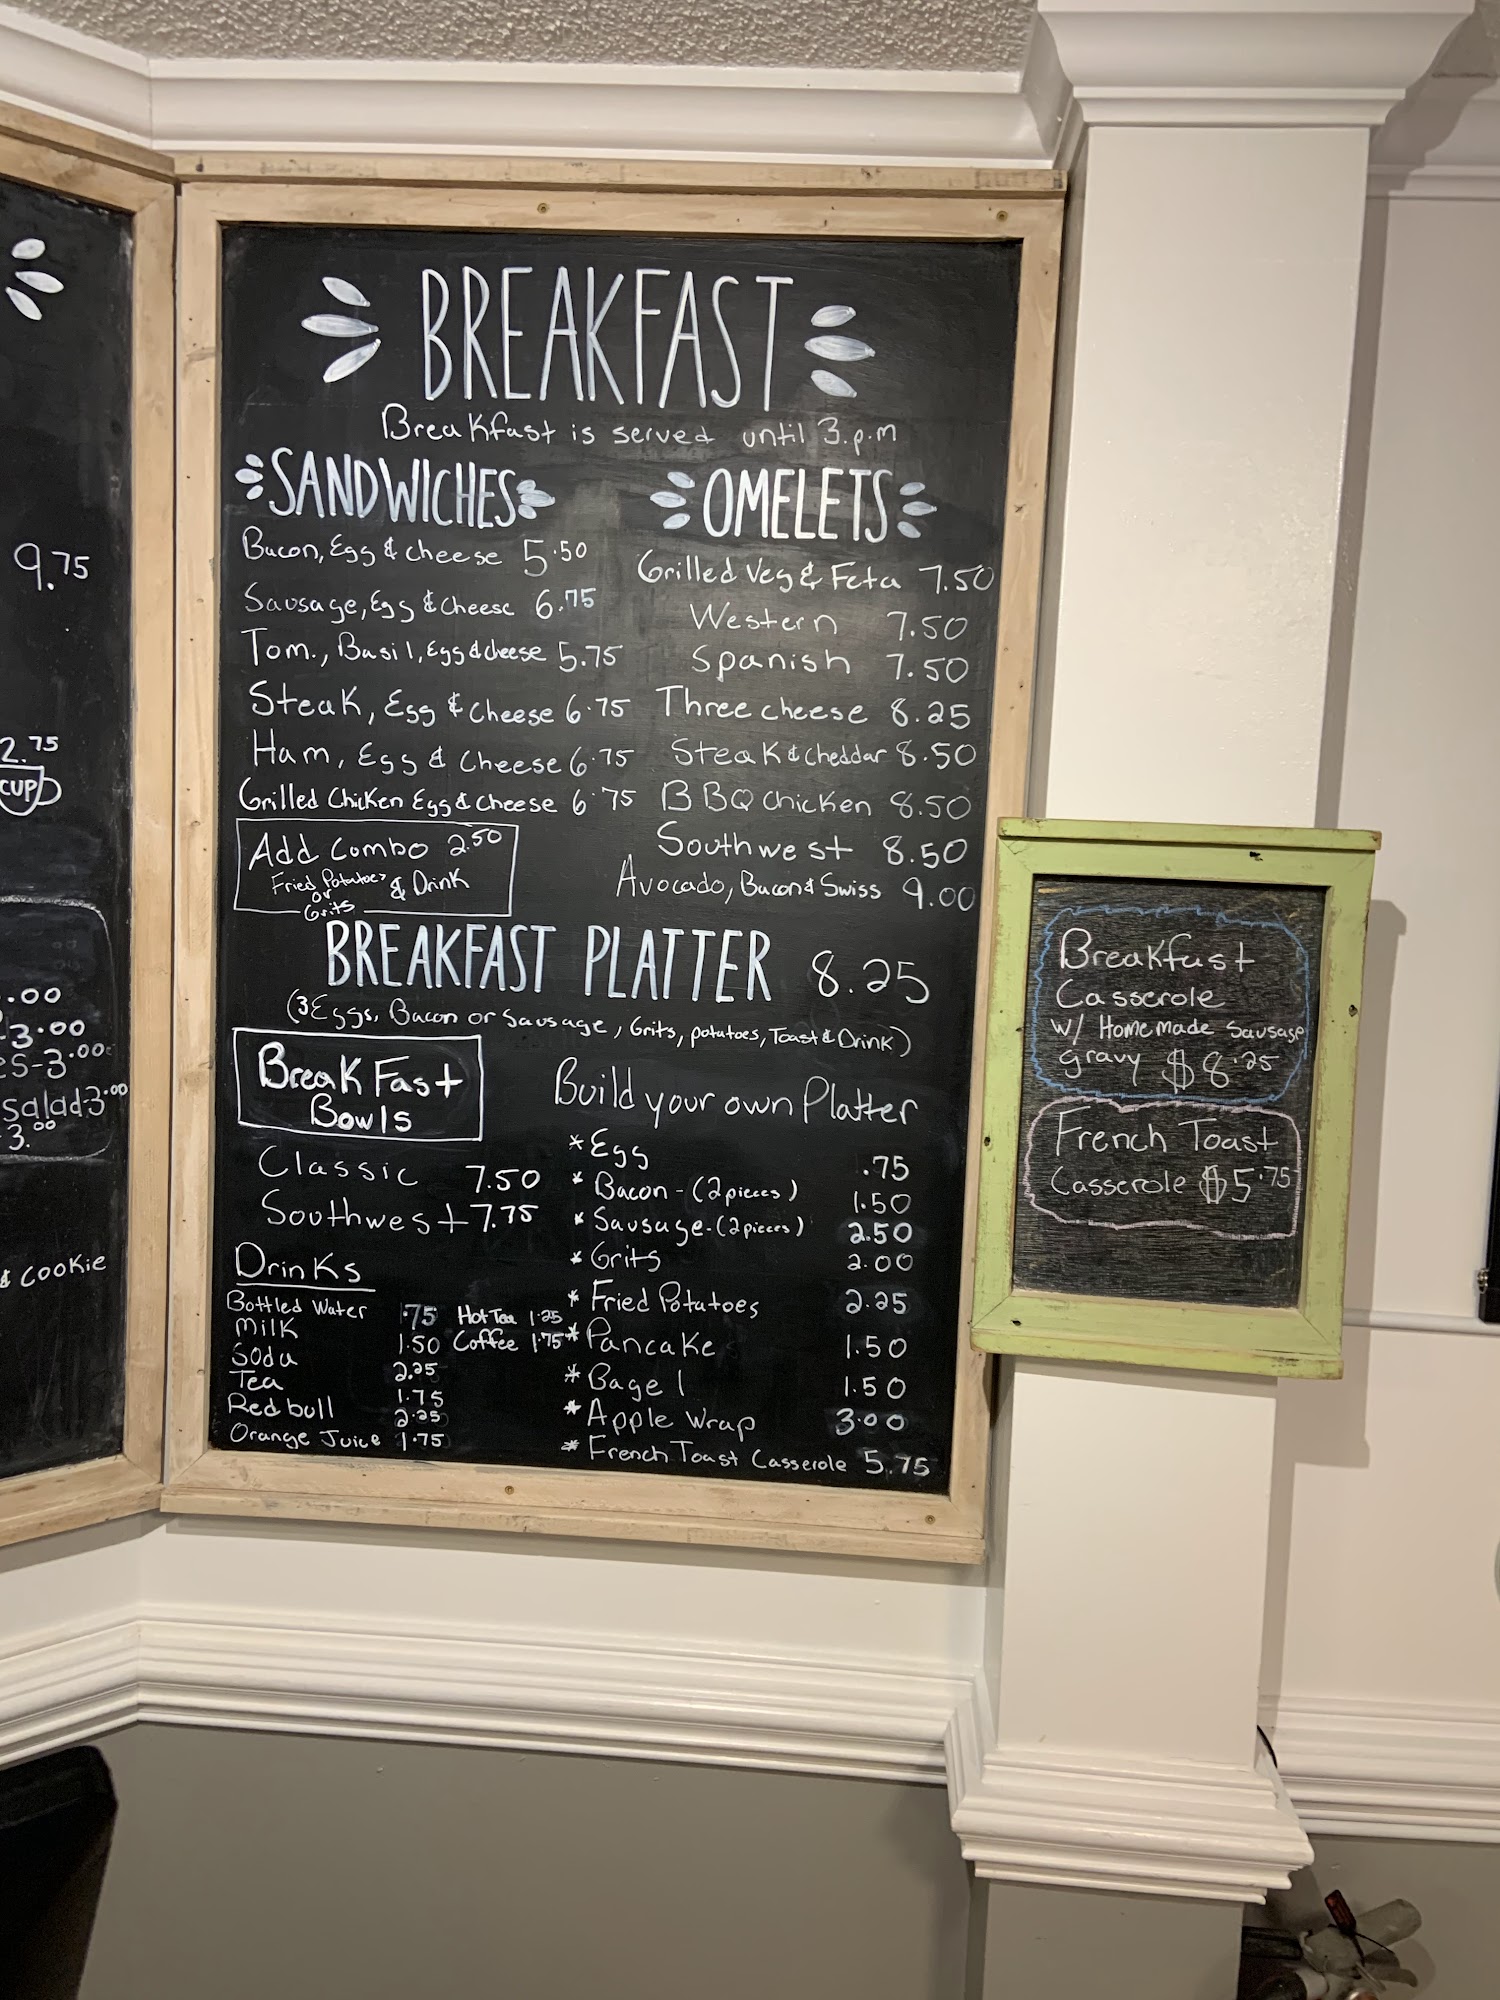 9.75
2.75
CUP
.00
3.00
es-3.00
salad-3.00
3.00
& COOKIE
BREAKFAST
Breakfast is served until 3.p.m
SANDWICHES
Bacon, Egg & cheese 5.50
Sausage, Egg & Cheese 6.75
Tom., Basil, Egg & cheese 5.75
Steak, Egg & Cheese 6.75
Ham, Egg & Cheese 6.75
Grilled Chicken Egg & Cheese 6.75
Add Combo 2.50
Fried Potatoes & Drink
or
Grits
OMELETS
Grilled Veg & Feta 7.50
Western 7.50
Spanish 7.50
Three cheese 8.25
Steak & Cheddar 8.50
BBQ Chicken 8.50
Southwest 8.50
Avocado, Bacon & Swiss 9.00
BREAKFAST PLATTER 8.25
(3 Eggs, Bacon or Sausage, Grits, potatoes, Toast & Drink)
BreakFast
Bowls
Classic 7.50
Southwest 7.75
Drinks
Bottled Water .75 Hot Tea 1.25
Milk 1.50 Coffee 1.75
Soda 2.25
Tea 1.75
Redbull 2.25
Orange Juice 1.75
Build your own Platter
* Egg .75
* Bacon - (2 pieces) 1.50
* Sausage - (2 pieces) 2.50
* Grits 2.00
* Fried Potatoes 2.25
* Pancake 1.50
* Bagel 1.50
* Apple Wrap 3.00
* French Toast Casserole 5.75
Breakfast
Casserole
w/ Homemade Sausage
gravy $8.25
French Toast
Casserole $5.75